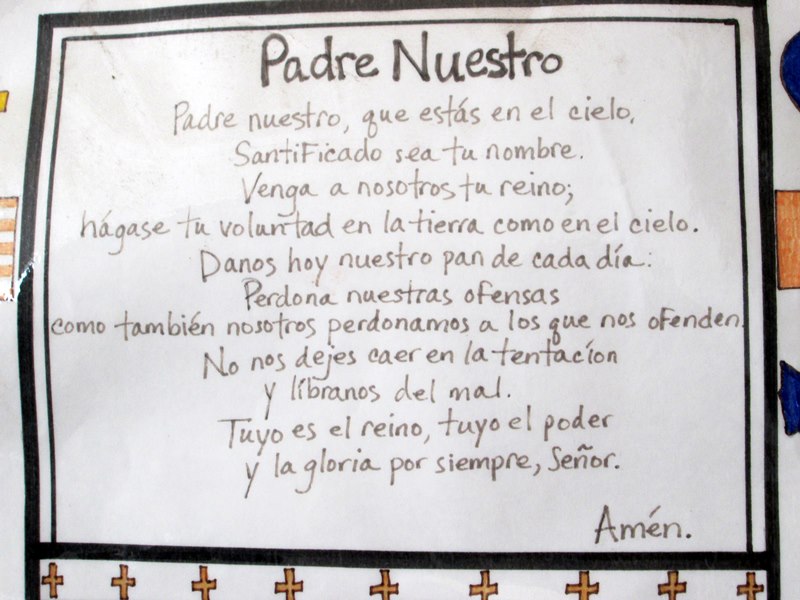 Padre Nuestro
Padre nuestro, que estás en el cielo,
Santificado sea tu nombre.
Venga a nosotros tu reino;
hágase tu voluntad en la tierra como en el cielo.
Danos hoy nuestro pan de cada día:
Perdona nuestras ofensas
como también nosotros perdonamos a los que nos ofenden.
No nos dejes caer en la tentacíon
y líbranos del mal.
Tuyo es el reino, tuyo el poder
y la gloria por siempre, Señor.
Amén.